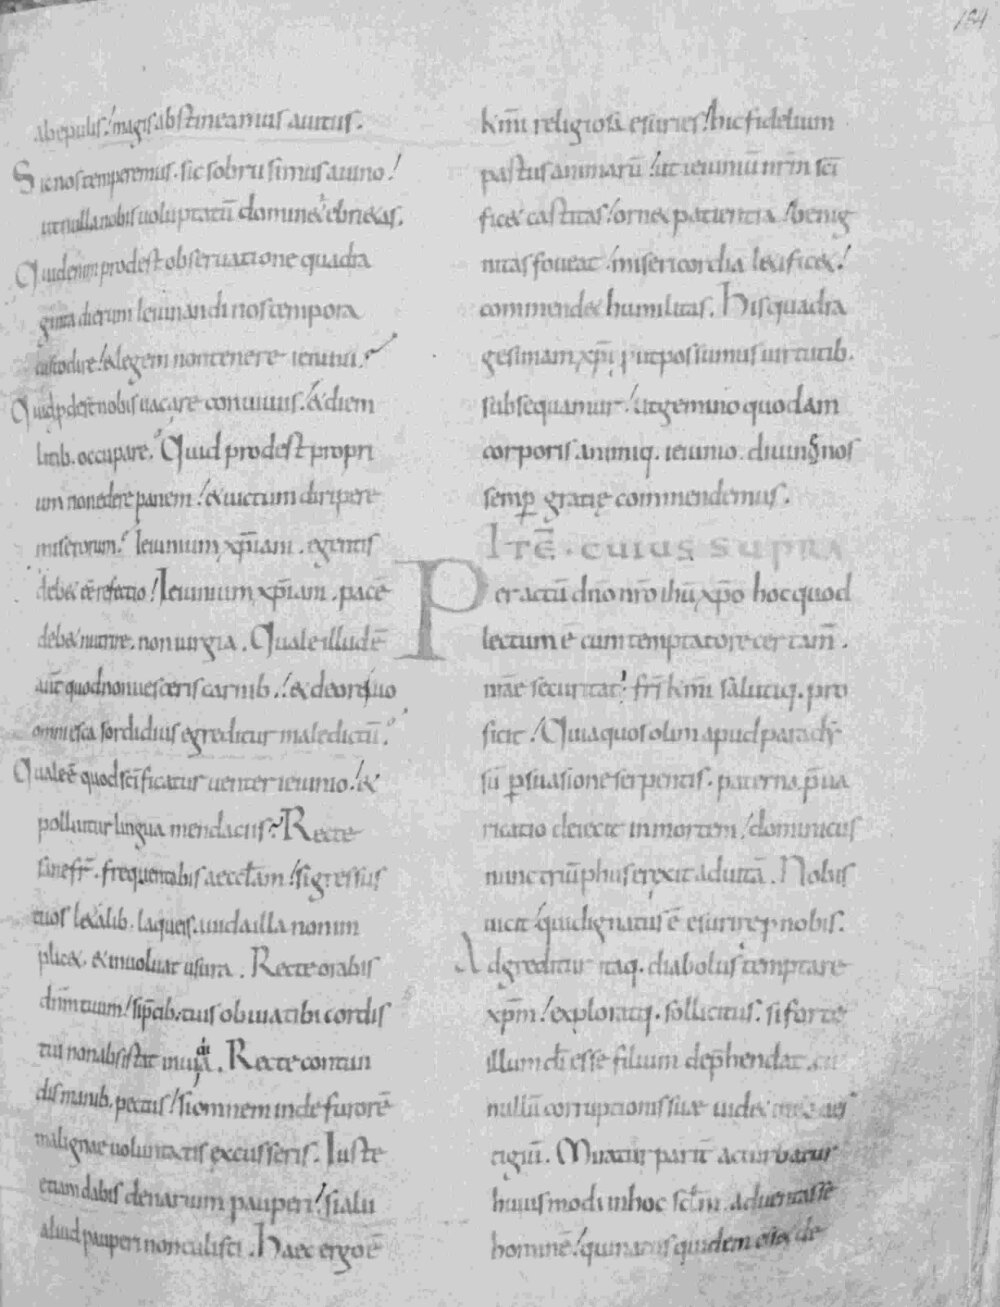 184
abepulis! magis abstineamus auitiis.
Sic nos temperemus. sic sobrii simus auino!
ut nulla nobis uoluptatū dominet ebrietas.
Quid enim prodest obseruatione quadra
ginta dierum ieiunandi nos tempora
custodire! & legem non tenere ieiunii?
Quid pdest nobis uacare conuiuiis! & diem
litib. occupare? Quid prodest propri
um non edere panem! & uictum diripere
miserorum? Ieiunium xp̄iani. egentis
debet eē refectio! Ieiunium xp̄iani. pacē
debet nutrire. non iurgia. Quale illud ē
aut̄ quod non uesceris carnib.! & de ore tuo
omni esca sordidius egreditur maledictū?
Quale ē quod scīficatur uenter ieiunio! &
polluitur lingua mendaciis? Recte
sane fr̄. frequentabis aecclam! si gressus
tuos letalib. laqueis. auida illa non im
plicet. & inuoluat usura. Recte orabis
dn̄m tuum! si p̄cib. tuis obuiantibi cordis
tui non absistat inuidia. Recte contun
dis manib. pectus! si omnem inde furorē
malignae uoluntatis excusseris. Iuste
etiam dabis denarium pauperi! si alii
aliud pauperi non tulisti. Haec ergo ē
km̄i religiosa esuries! hic fidelium
pastus animarū! ut ieiuniū nr̄m scī
ficet castitas! ornet patientia! benig
nitas foueat! misericordia letificet!
commendet humilitas. His quadra
gesimam xp̄i put possumus uirtutib.
subsequamur! ut gemino quodam
corporis. animiq. ieiunio. diuinę nos
semp gratię commendemus.
ITĒ. CUIUS SUPRA
Peractū dn̄o nr̄o ihū xp̄o hoc quod
lectum ē cum temptatore certam̄.
nr̄ae securitati fr̄s km̄i salutiq. pro
ficit! Quia quos olim apud parady
sū psuasione serpentis. paterna p̄ua
ricatio deiecit in mortem! dominicus
nunc triūphus erexit ad uitā. Nobis
uicit! qui dignatus ē esurire p nobis.
Adgreditur itaq. diabolus temptare
xp̄m! exploratq. sollicitus. si forte
illum dī esse filium dep̄hendat.
nullū corruptionis suae uidet
tigiū. Miratur parit̄ ac turbatur
huiusmodi in hoc sclm̄. aduentasse
hominē! qui natus quidem de